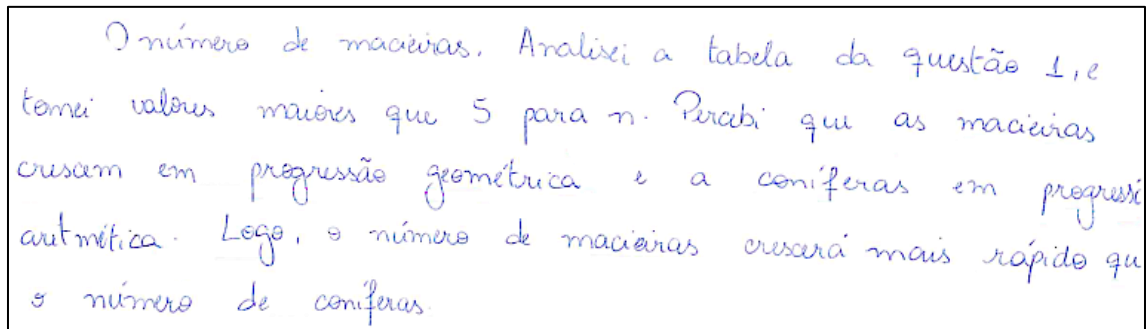 O número de macieiras. Analisei a tabela da questão 1, e
tomei valores maiores que 5 para n. Percebi que as macieiras
crescem em progressão geométrica e a coníferas em progressã
aritmética. Logo, o número de macieiras crescerá mais rápido qu
o número de coníferas.